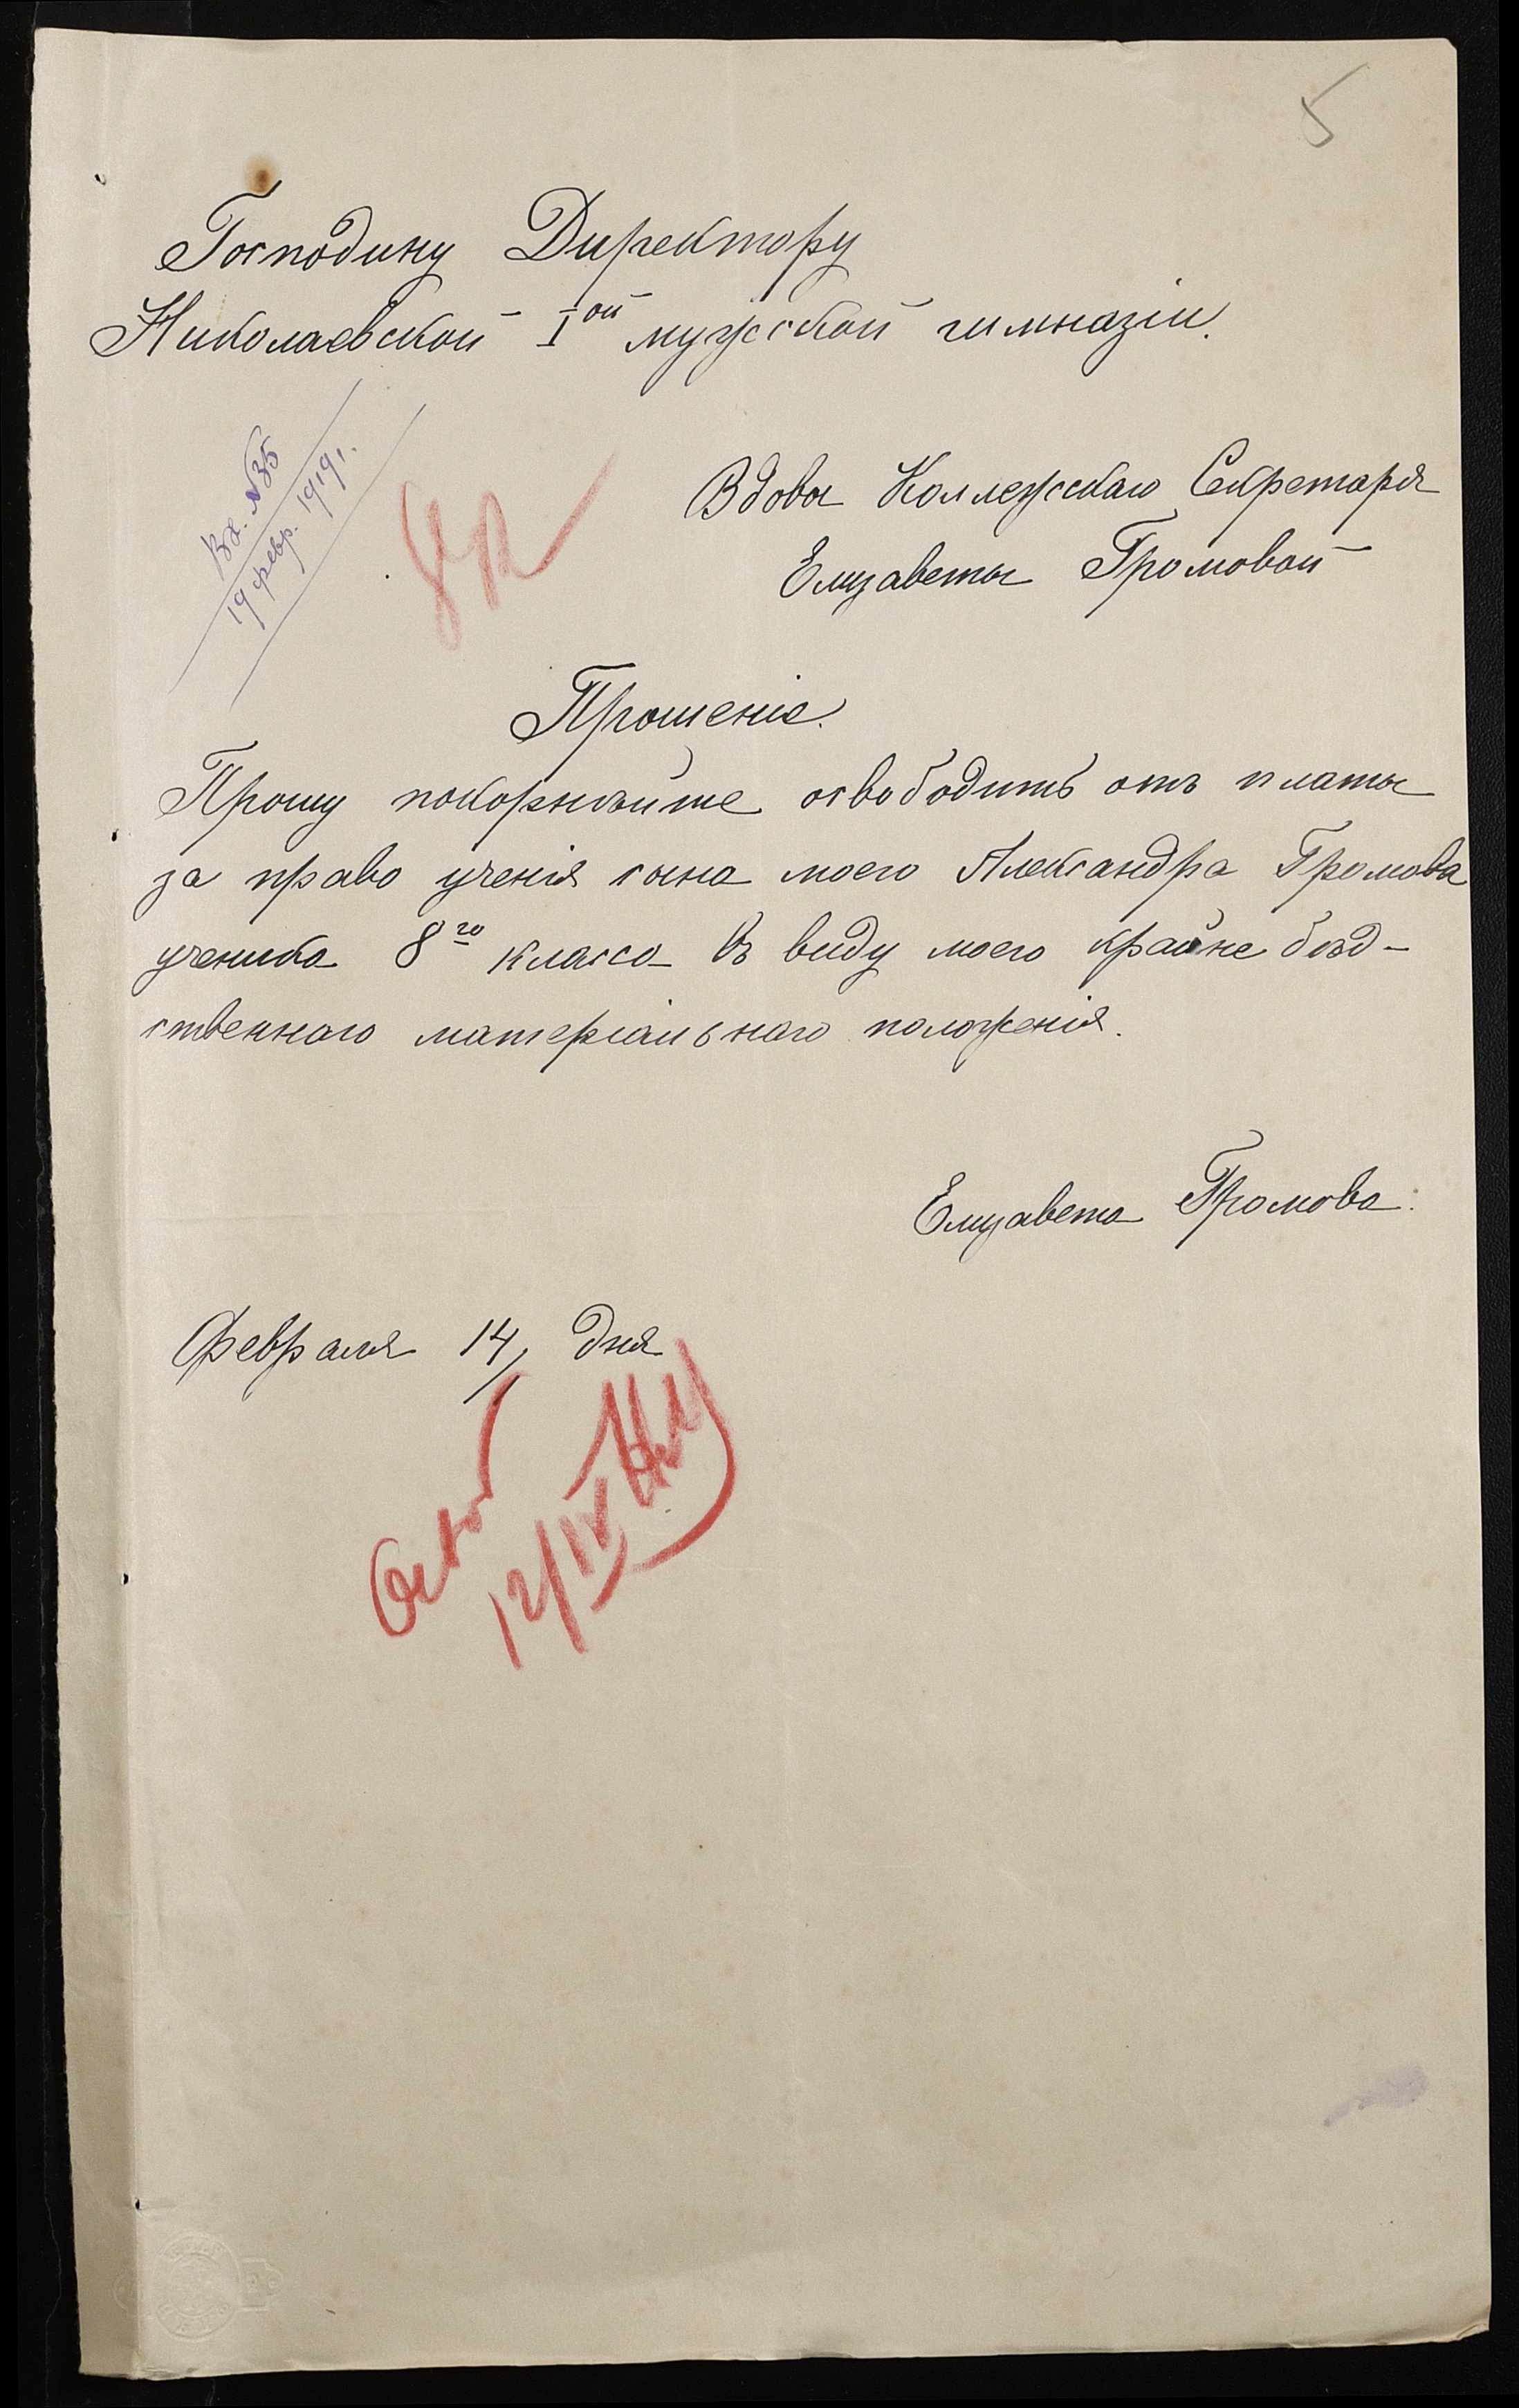 5
Господину Директору
Николаевской I ой мужской гимназіи.
Вх. №35
19 февр. 1919 г.
Вдовы Коллежскаго Секретаря
Елизаветы Громовой
Прошеніе.
Прошу покорнѣйше освободить отъ платы
за право ученія сына моего Александра Громова
ученика 8 го класса въ виду моего крайне бѣд-
ственнаго матеріальнаго положенія.
Елизавета Громова.
Февраля 14/ дня
12/IV